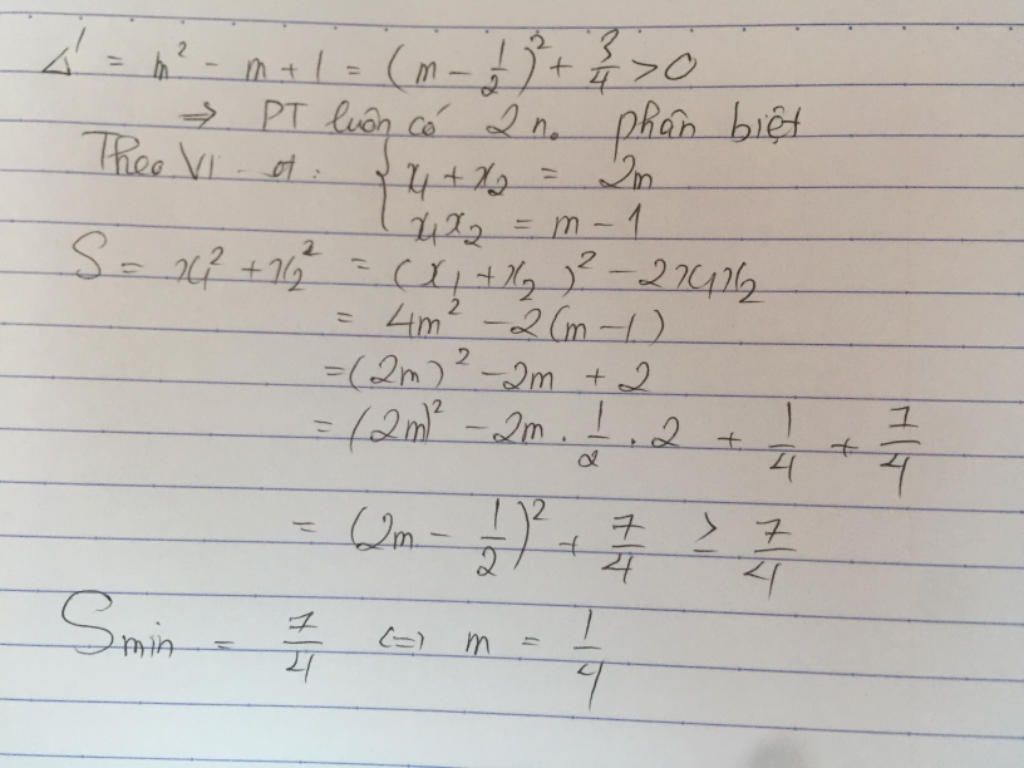 Δ' = m² - m + 1 = (m - 1/2)² + 3/4 > 0
⇒ PT luôn có 2 n. phân biệt
Theo Vi-et: { x₁ + x₂ = 2m
x₁x₂ = m - 1
S = x₁² + x₂² = (x₁ + x₂)² - 2x₁x₂
= 4m² - 2(m - 1)
= (2m)² - 2m + 2
= (2m)² - 2m . 1/2 . 2 + 1/4 + 7/4
= (2m - 1/2)² + 7/4 ≥ 7/4
Smin = 7/4 ⇔ m = 1/4